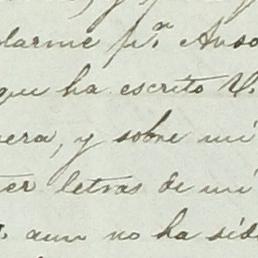 larme pr. Anso
que ha escrito V.
era, y sobre mi
ter letras de mi
aun no ha sid